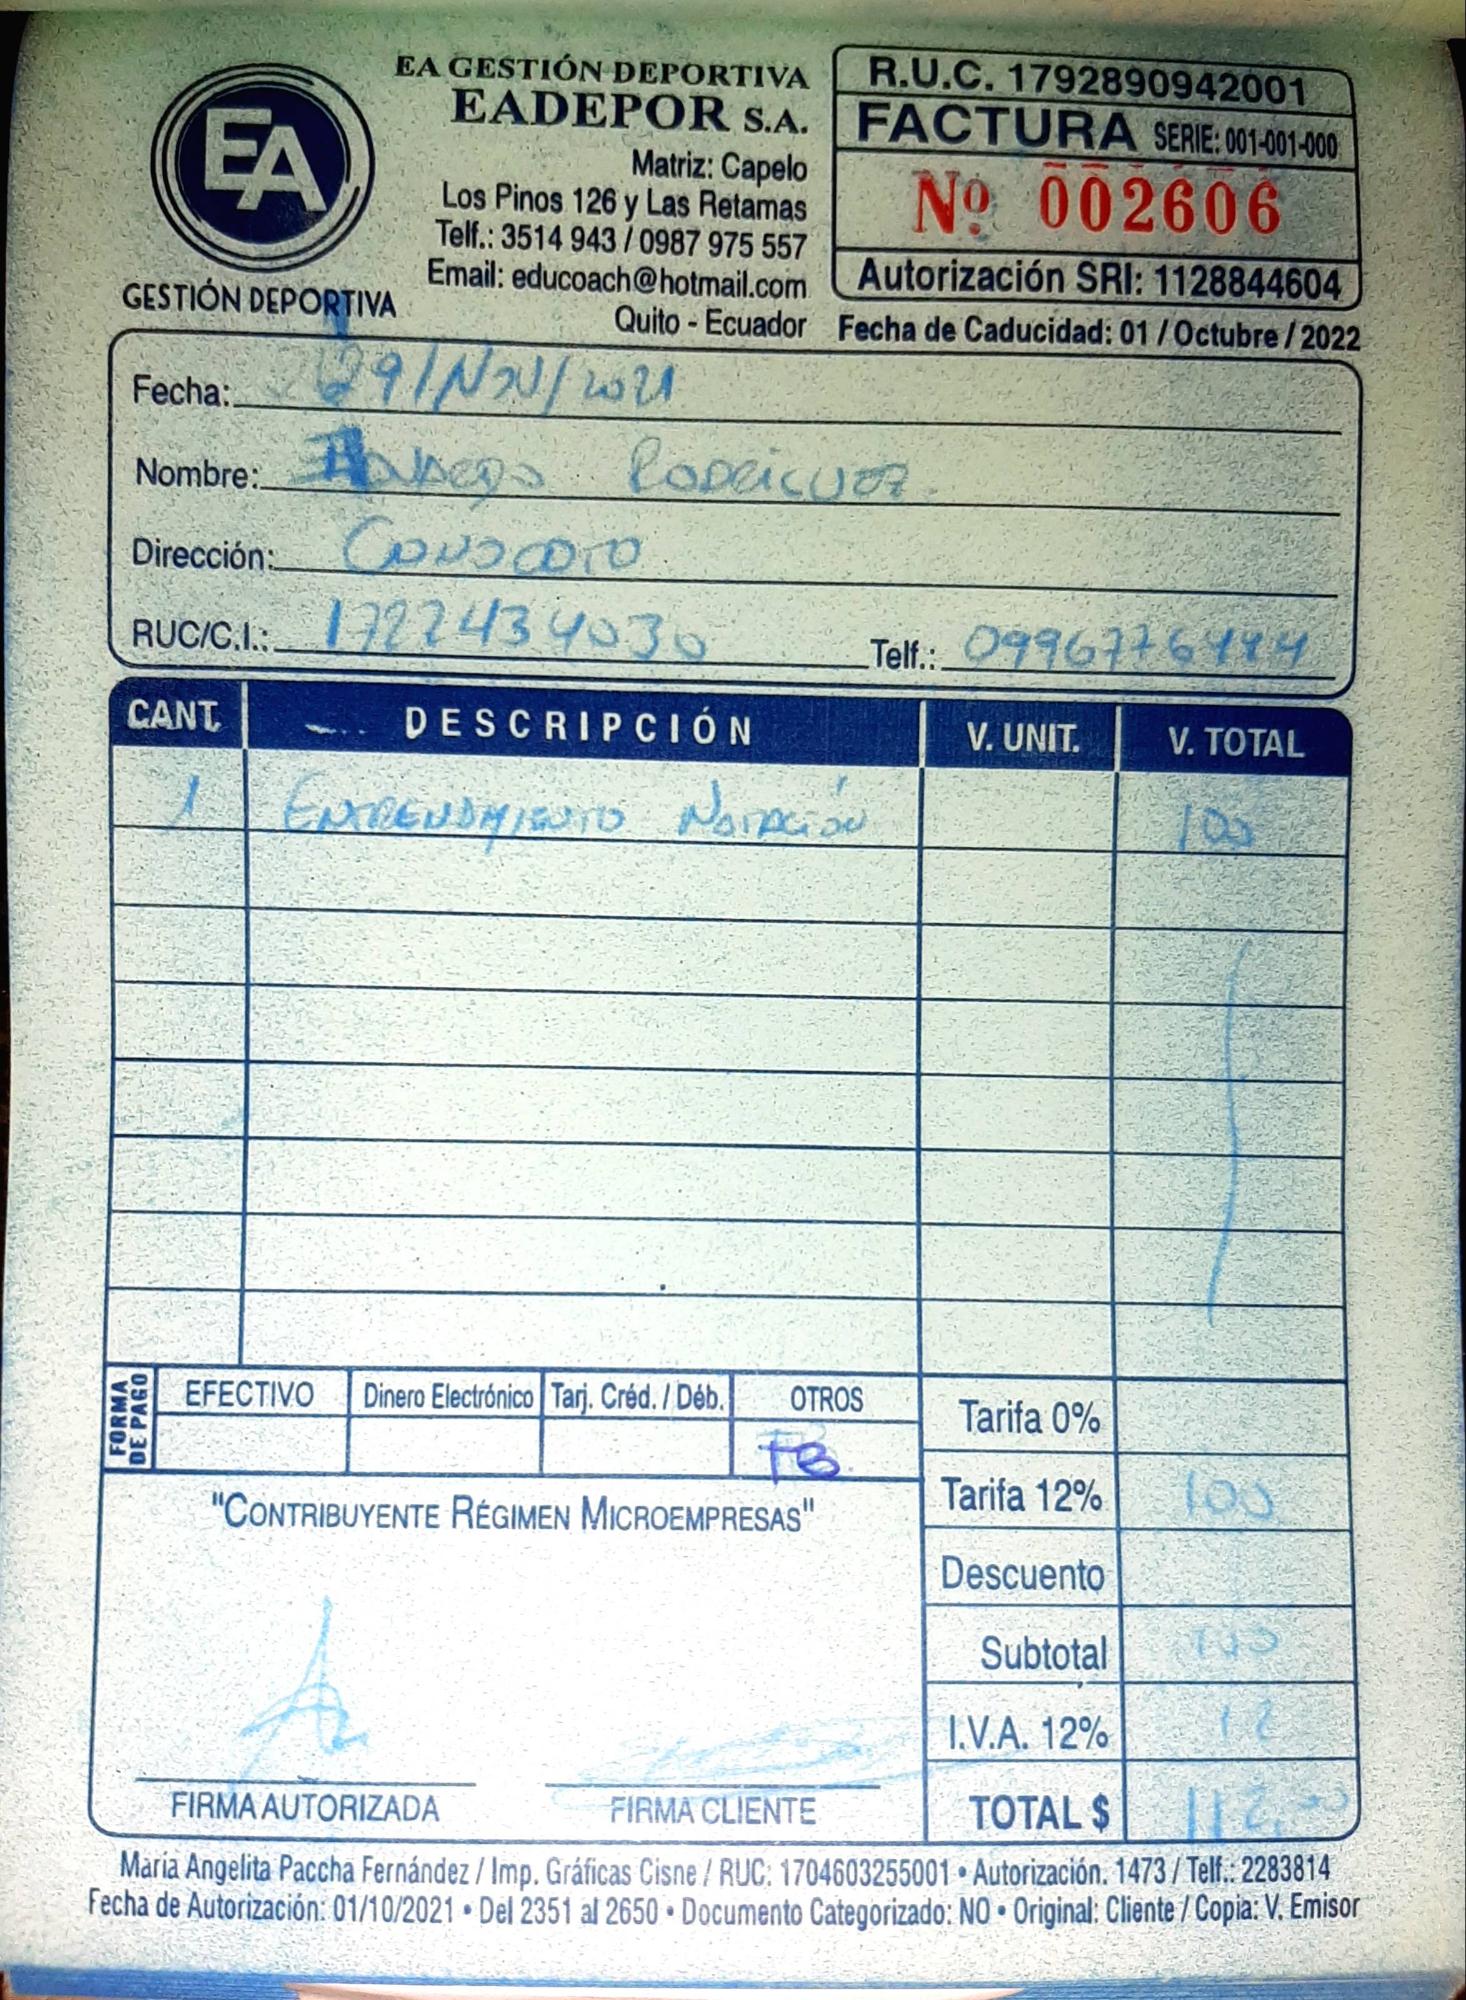 EA
GESTIÓN DEPORTIVA
EA GESTIÓN DEPORTIVA
EADEPOR S.A.
Matriz: Capelo
Los Pinos 126 y Las Retamas
Telf.: 3514 943 / 0987 975 557
Email: educoach@hotmail.com
Quito - Ecuador
R.U.C. 1792890942001
FACTURA SERIE: 001-001-000
Nº 002606
Autorización SRI: 1128844604
Fecha de Caducidad: 01 / Octubre / 2022
Fecha: 29/Nov/2021
Nombre: Rodríguez
Dirección: Conocoto
RUC/C.I.: 1722434030 Telf.:
CANT. DESCRIPCIÓN V. UNIT. V. TOTAL
1 Entrenamiento Natación 100
FORMA DE PAGO
EFECTIVO Dinero Electrónico Tarj. Créd. / Déb. OTROS
TB
Tarifa 0%
Tarifa 12% 100
Descuento
Subtotal 100
I.V.A. 12% 12
TOTAL $ 112,00
"CONTRIBUYENTE RÉGIMEN MICROEMPRESAS"
FIRMA AUTORIZADA FIRMA CLIENTE
María Angelita Paccha Fernández / Imp. Gráficas Cisne / RUC: 1704603255001 • Autorización. 1473 / Telf.: 2283814
Fecha de Autorización: 01/10/2021 • Del 2351 al 2650 • Documento Categorizado: NO • Original: Cliente / Copia: V. Emisor